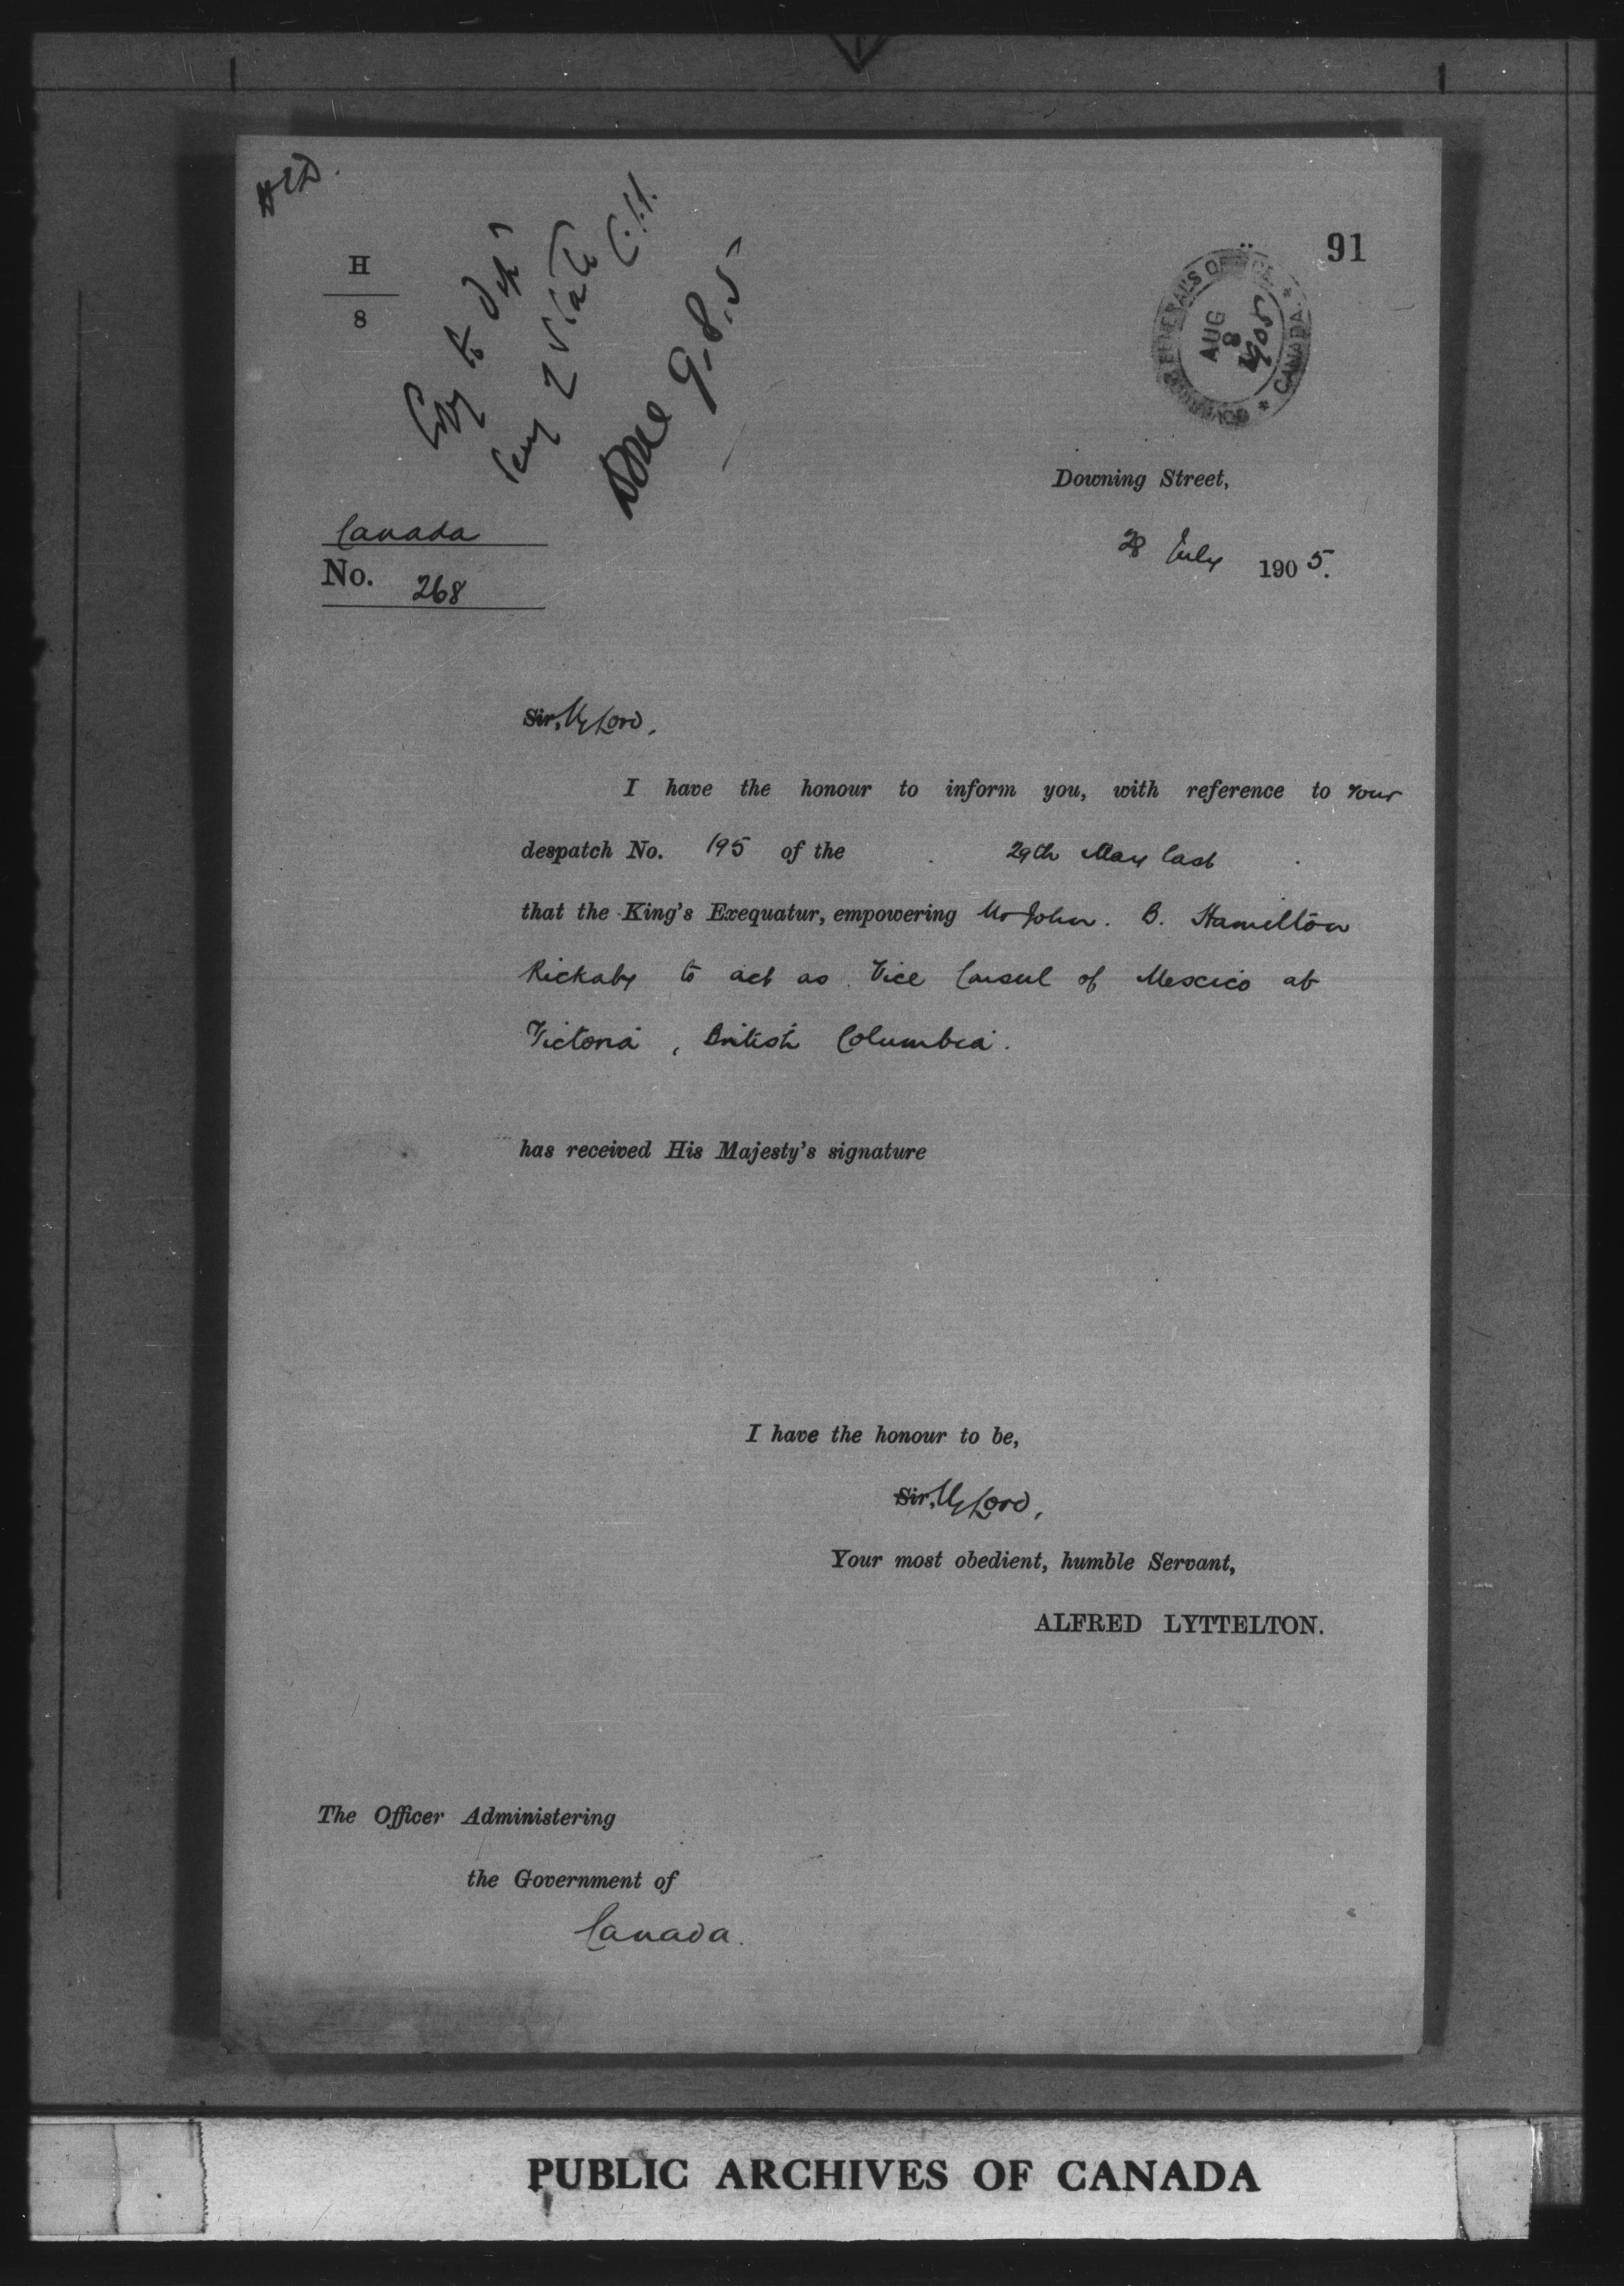 H
8
Copy to Dept
Secy of State
Done 9.8.5
91
GOVERNOR GENERAL'S OFFICE
* CANADA *
AUG
8
1905
Downing Street,
Canada
28 July 1905.
No. 268
Sir, My Lord,
I have the honour to inform you, with reference to your
despatch No. 195 of the 29th May last
that the King's Exequatur, empowering Mr John. B. Hamilton
Rickaby to act as Vice Consul of Mexico at
Victoria, British Columbia.
has received His Majesty's signature
I have the honour to be,
Sir, My Lord,
Your most obedient, humble Servant,
ALFRED LYTTELTON.
The Officer Administering
the Government of
Canada.
PUBLIC ARCHIVES OF CANADA